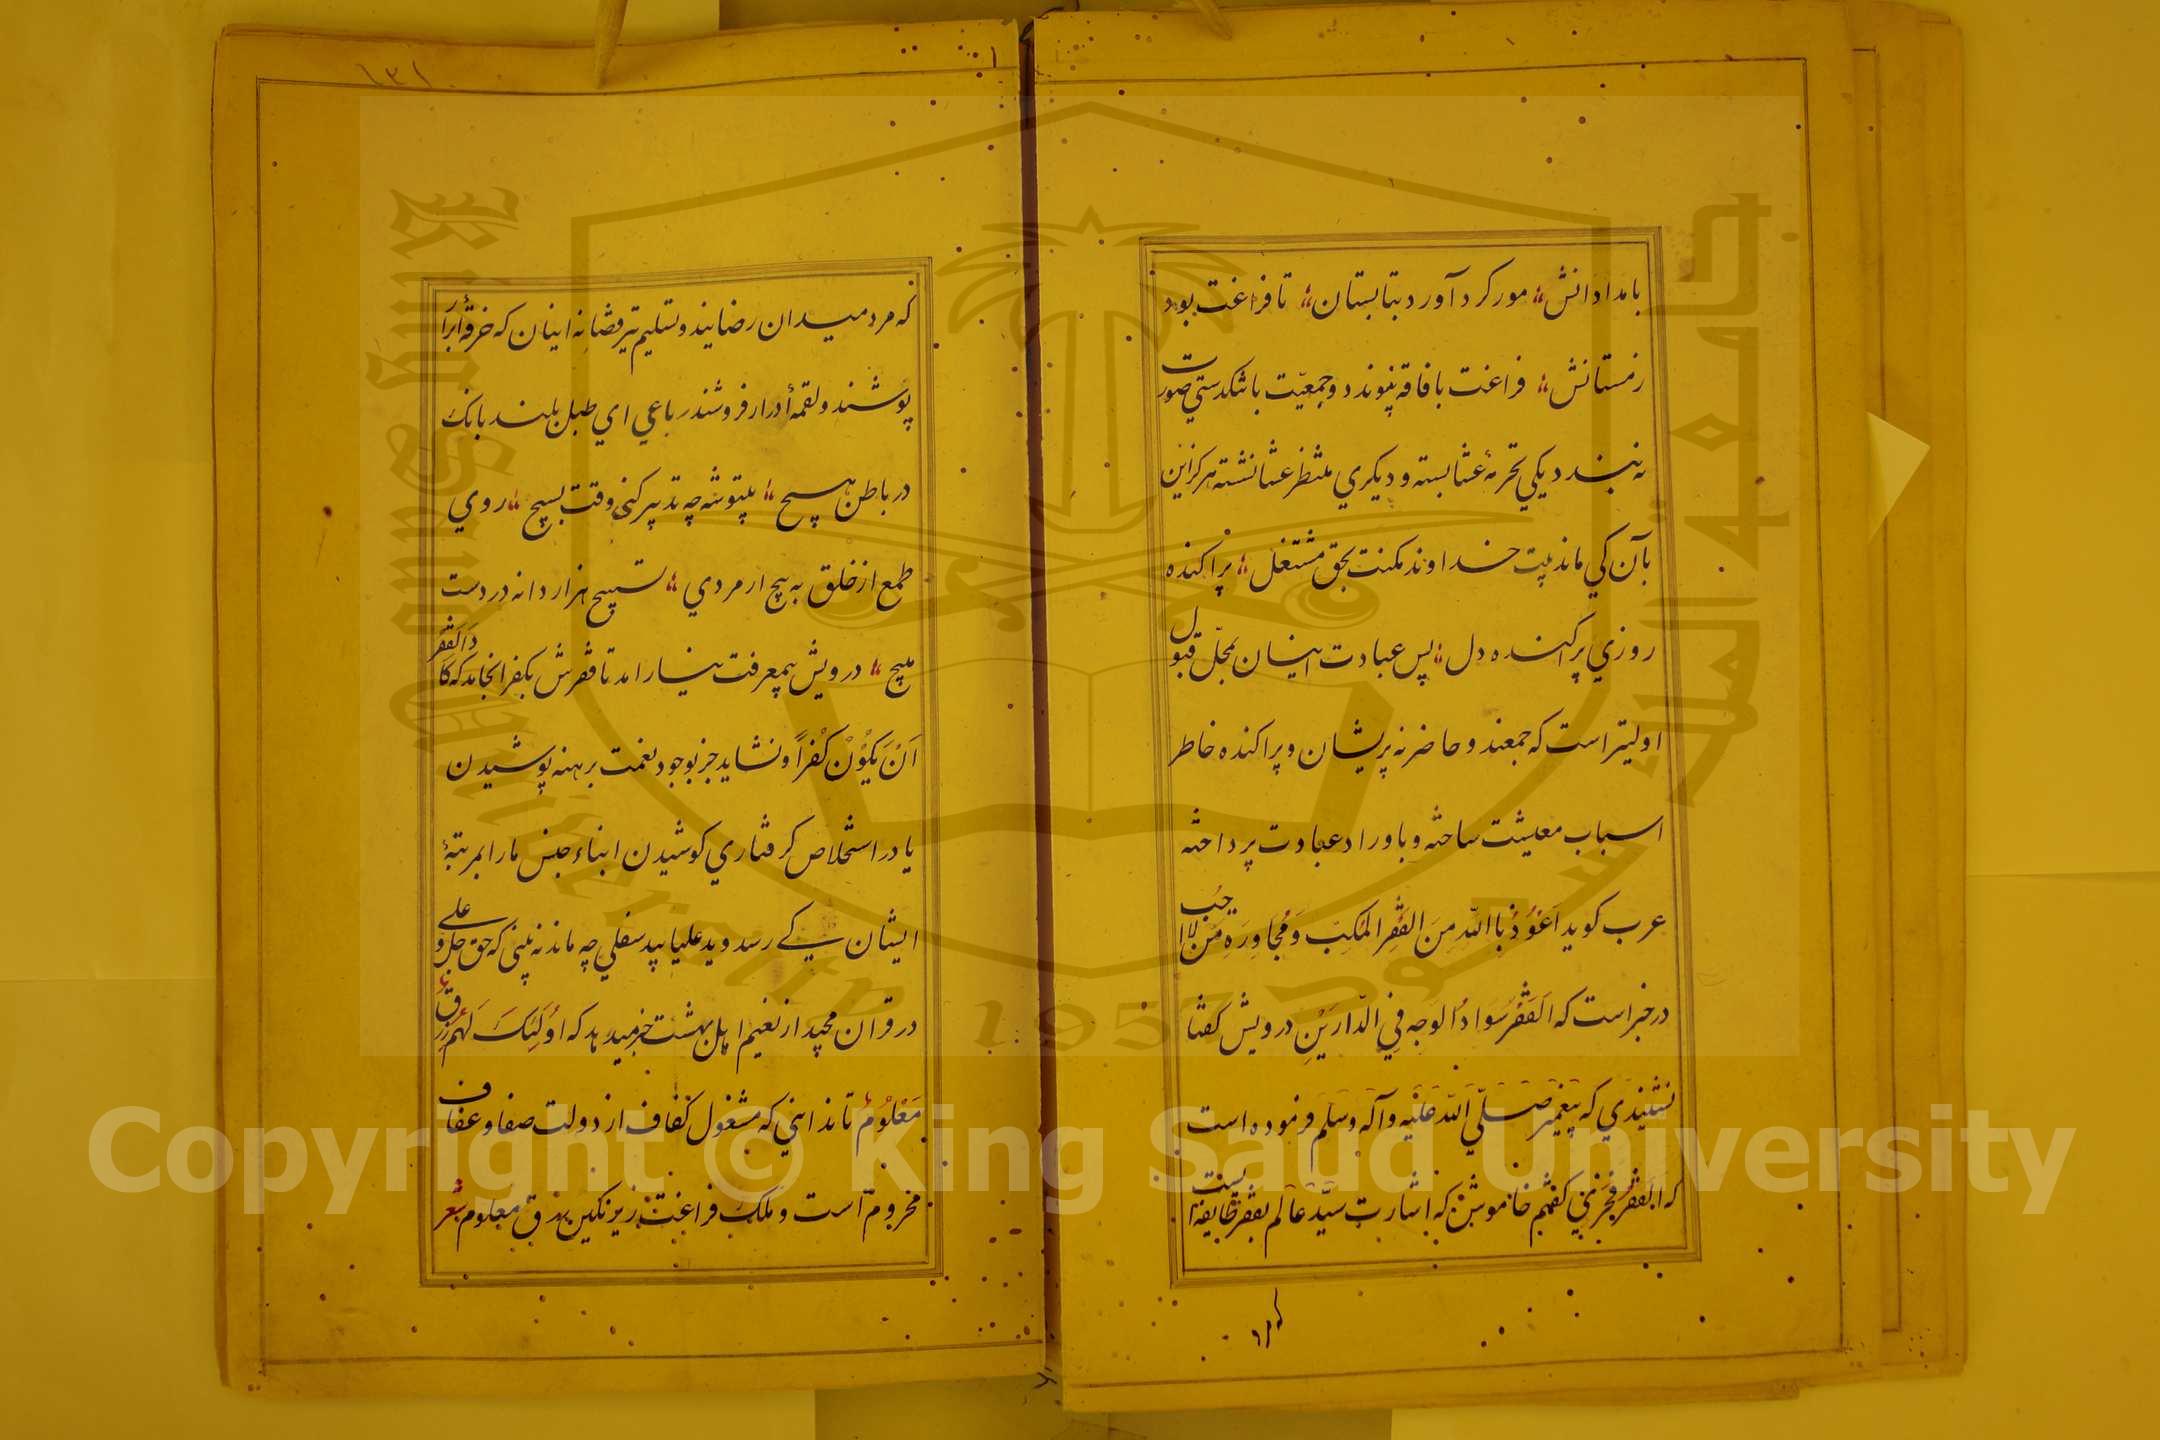 بامدادانش مور کرد آورد بتابستان تا فراغت بود
زمستانش فراغت با فاقه نپیوندد و جمعیّت با تنکدستي صورت
نه بندد یکي تحرمهٔ عشا بسته و دیکري منتظر عشا نشسته هرکز این
بآن کي ماند بیت خداوند مکنت بحق مشتغل پراکنده
روزي پراکنده دل پس عبادت اینان بمحلّ قبول
اولیتر است که جمعند و حاضر نه پریشان و پراکنده خاطر
اسباب معیشت ساخته و باوراد عبادت پرداخته
عرب کوید اَعُوْذُ بِاللّهِ مِنَ الفَقْرِ المُکِبِّ وَ مُجَاوِرَهِ مَنْ لَا اُحِبُّ
در خبر است که اَلفَقْرُ سَوَادُ الوَجهِ فِي الدّارَیْنِ درویش کفتا
نشنیدي که پیغمبر صَلّي اللّه عَلَیْه وآله وَسَلّم فرموده است
که اَلفَقْرُ فَخْرِيْ کفتم خاموش که اشارت سیّد عالم بفقر طایفهٔ ایست
١٣١
که مرد میدان رضایند و تسلیم تیر قضا نه اینان که خرقهٔ ابرار
پوشند و لقمهٔ ادرار فروشند رباعي اي طبل بلند بانک
در باطن هیچ بیتوشه چه تدبیر کني وقت بسیچ روي
طمع از خلق به پیچ ار مردي تسبیح هزار دانه در دست
مپیچ درویش بیمعرفت نیارامد تا فقرش بکفر انجامد که کَادَ الفَقْرُ
اَنْ یَکُوْنَ کُفْراً و نشاید جز بوجود نعمت برهنه پوشیدن
یا در استخلاص کرفتاري کوشیدن ابناء جنس ما را بمرتبهٔ
ایشان کے رسد و ید علیا بید سفلي چه ماند نه بیني که حق جل و علی
در قران مجید از نعیم اهل بهشت خبر میدهد که اُولٰئِكَ لَهُمْ رِزْقٌ
مَعْلُومٌ تا ندانیی که مشغول کفاف از دولت صفا و عفاف
محروم است و ملک فراغت زیر نکین رزق معلوم شعر